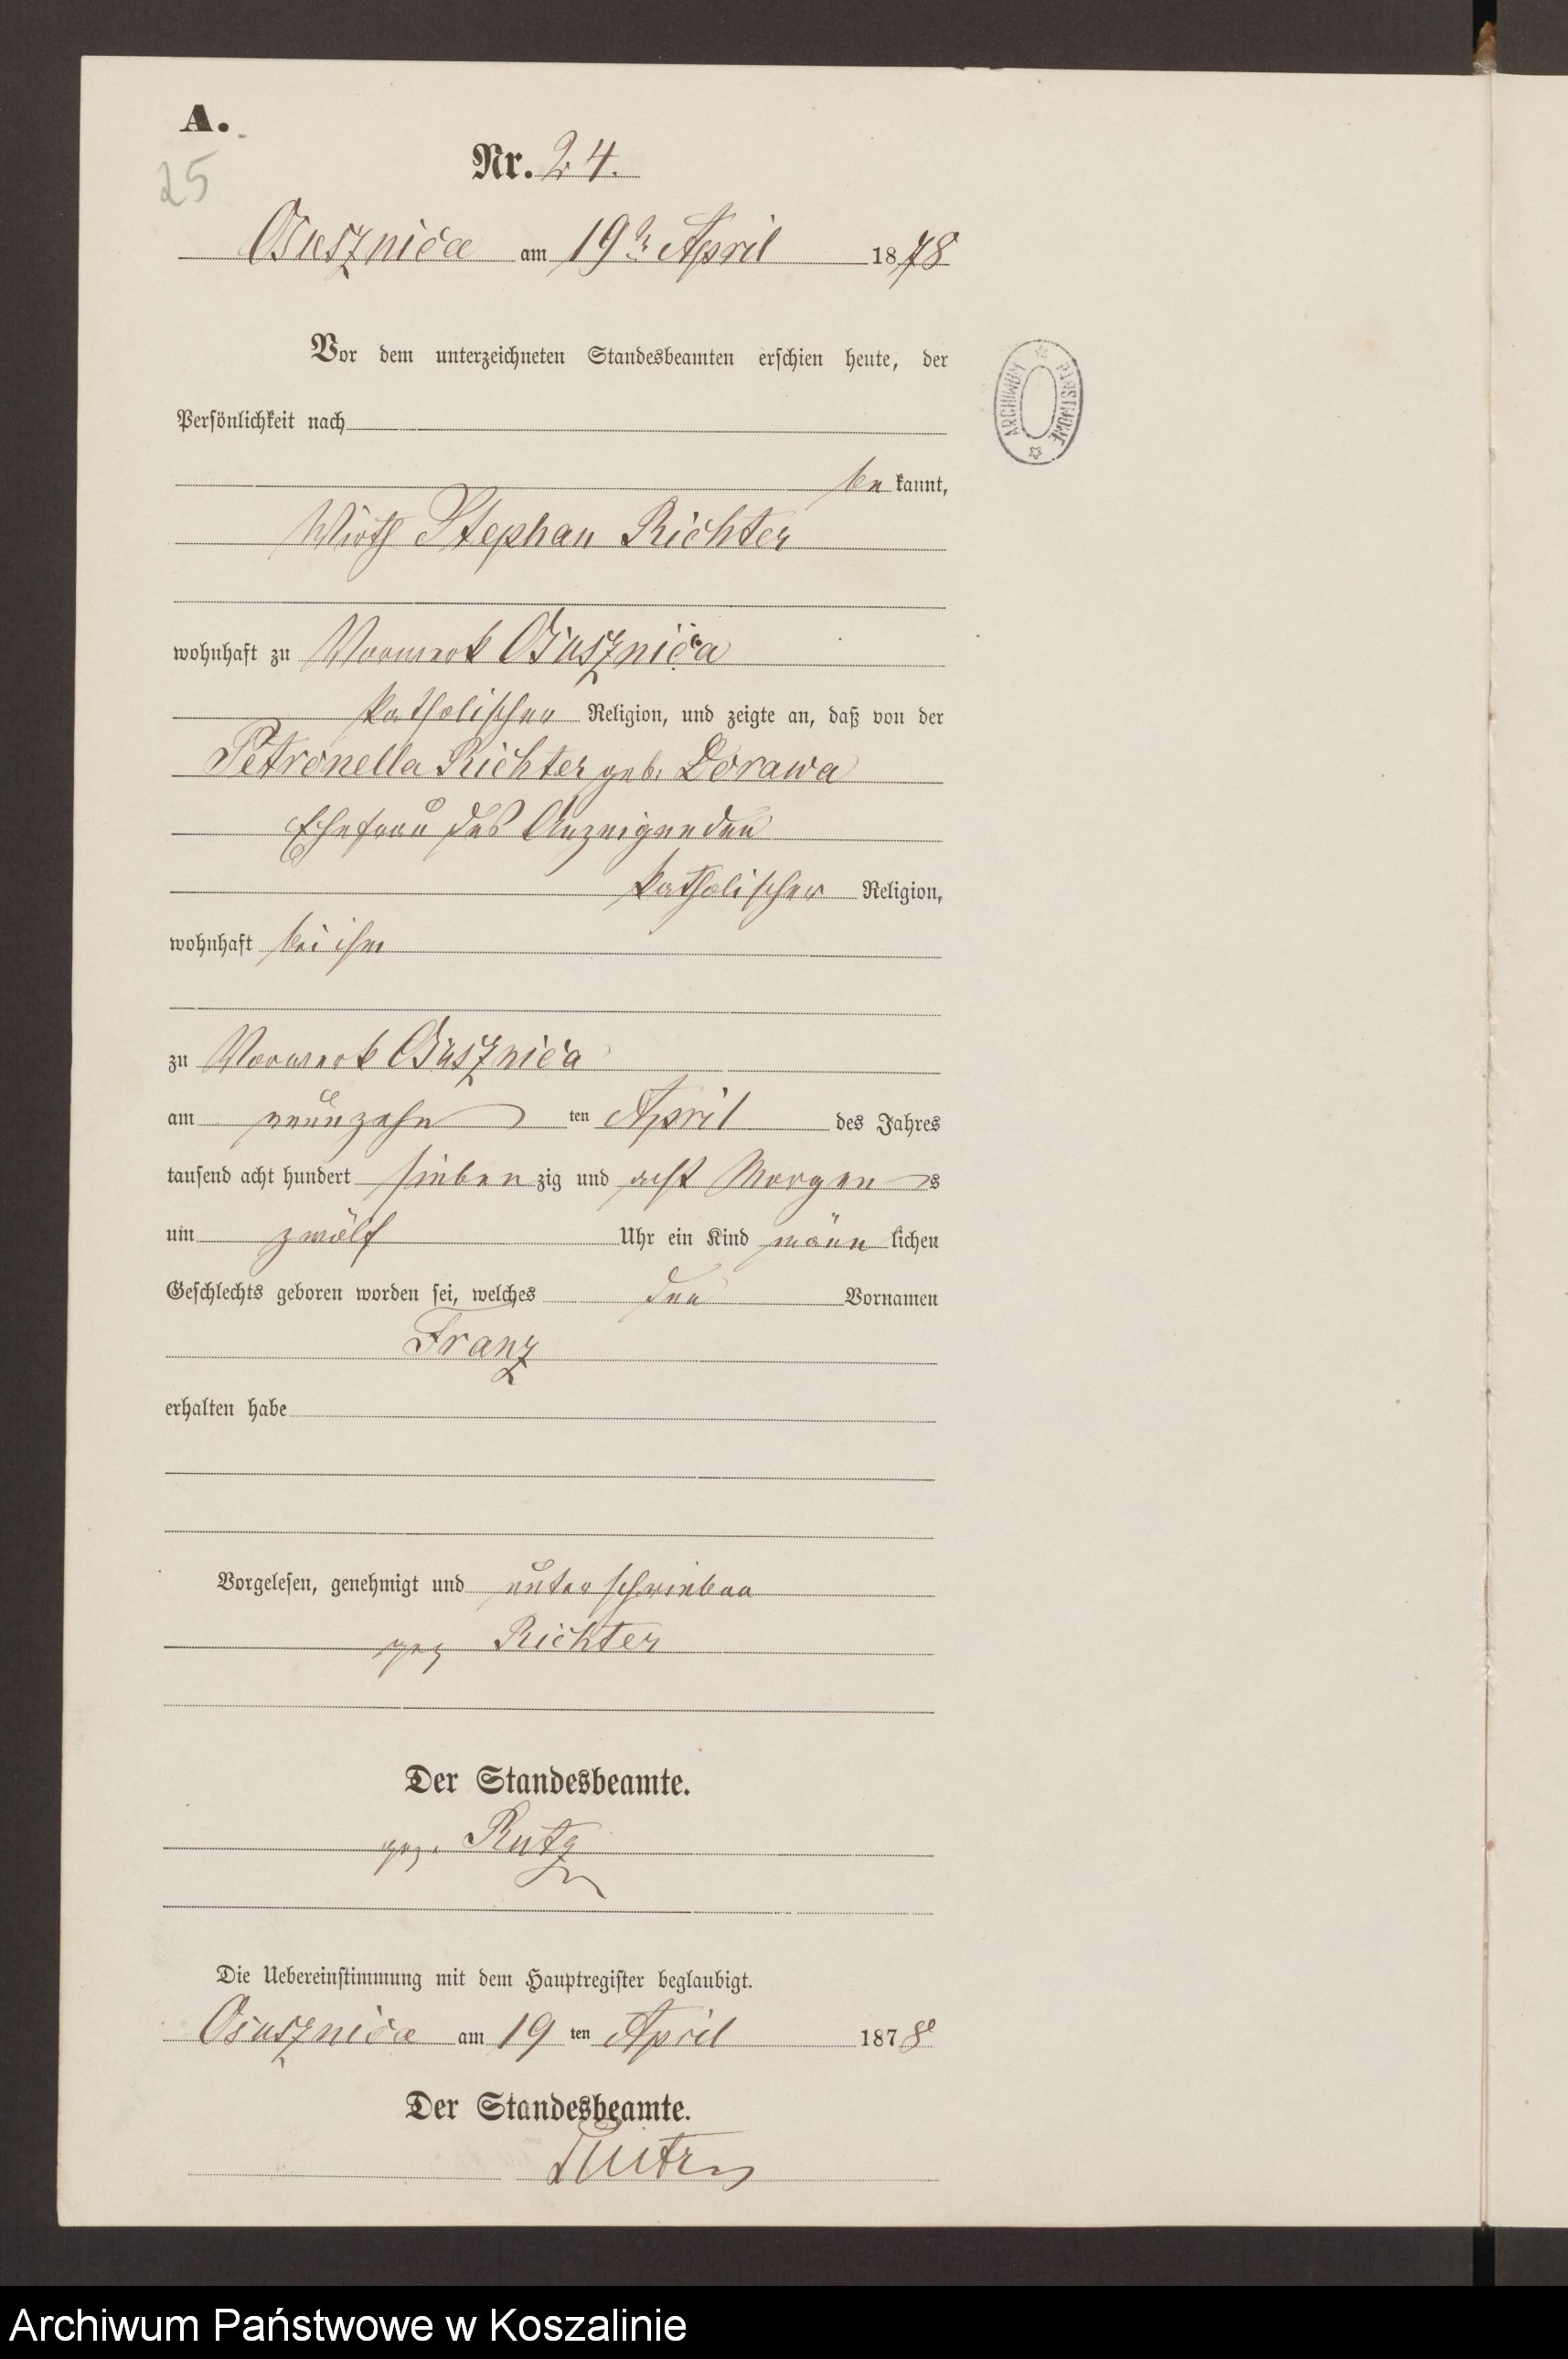 A.
25
Nr. 24.
Osusznica am 19t April 1878
Vor dem unterzeichneten Standesbeamten erschien heute, der
Persönlichkeit nach
be kannt,
Wirth Stephan Richter
wohnhaft zu Vorwerk Osusznica
katholischer Religion, und zeigte an, daß von der
Petronella Richter geb. Dorawa
Ehefrau des Anzeigenden
katholischer Religion,
wohnhaft bei ihm
zu Vorwerk Osusznica
am neunzehn ten April des Jahres
tausend acht hundert sieben zig und acht Morgens
um zwölf Uhr ein Kind männ lichen
Geschlechts geboren worden sei, welches den Vornamen
Franz
erhalten habe
Vorgelesen, genehmigt und unterschrieben
gez Richter
Der Standesbeamte.
gez. Rutz
Die Uebereinstimmung mit dem Hauptregister beglaubigt.
Osusznica am 19 ten April 1878
Der Standesbeamte.
Rutz
ARCHIWUM PAŃSTWOWE
Archiwum Państwowe w Koszalinie